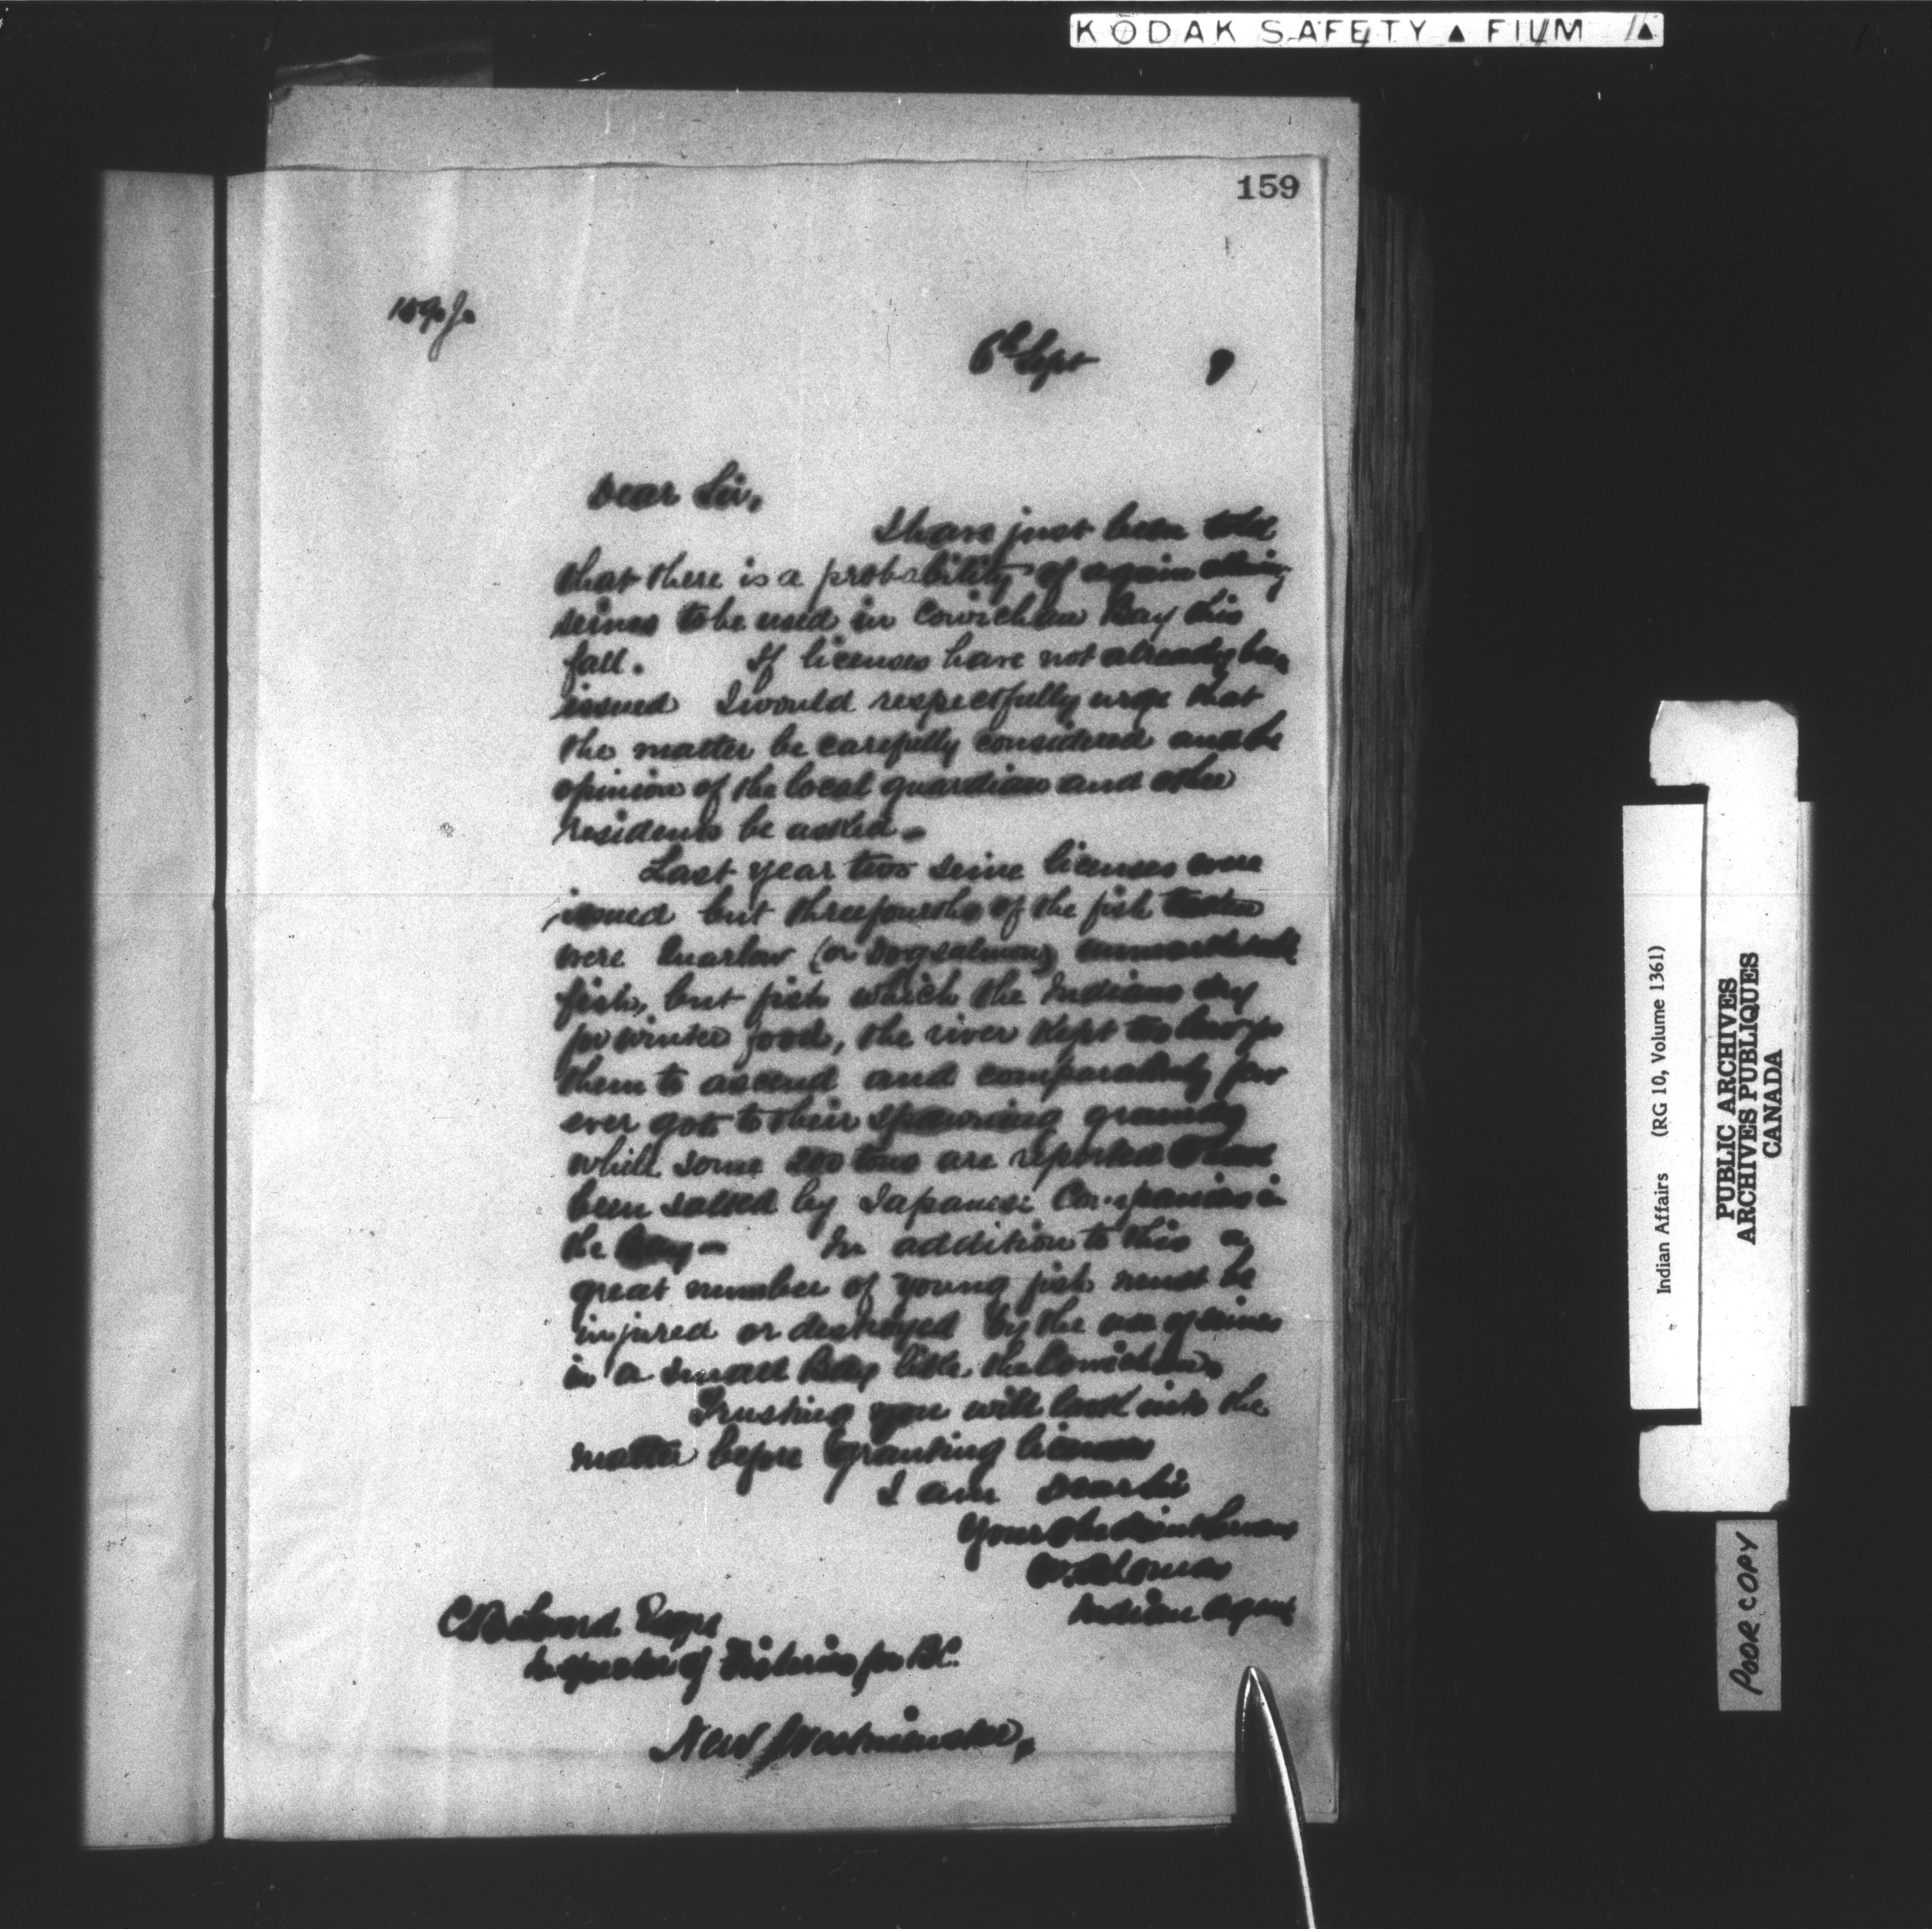 KODAK SAFETY ▲ FILM
159
6th Sept 9
Dear Sir,
I have just been told
that there is a probability of again allowing
seines to be used in Cowichan Bay this
fall. If licenses have not already been
issued I would respectfully urge that
the matter be carefully considered and the
opinion of the local guardian and other
residents be asked -
Last year two seine licenses were
issued but threefourths of the fish taken
were Quarlow (or Dogsalmon)
fish, but fish which the Indians dry
for winter food, the river kept too low for
them to ascend and comparatively few
ever got to their spawning grounds
while some 200 tons are reported to have
been salted by Japanese Companies in
the Bay - In addition to this a
great number of young fish must be
injured or destroyed by the use of seines
in a small Bay like the Cowichan.
Trusting you will look into the
matter before granting licenses
I am Dear Sir
Your obedient Servant
W. H. Lomas
Indian Agent
Esqre
Inspector of Fisheries for B.C.
New Westminster,
Indian Affairs (RG 10, Volume 1361)
PUBLIC ARCHIVES
ARCHIVES PUBLIQUES
CANADA
POOR COPY